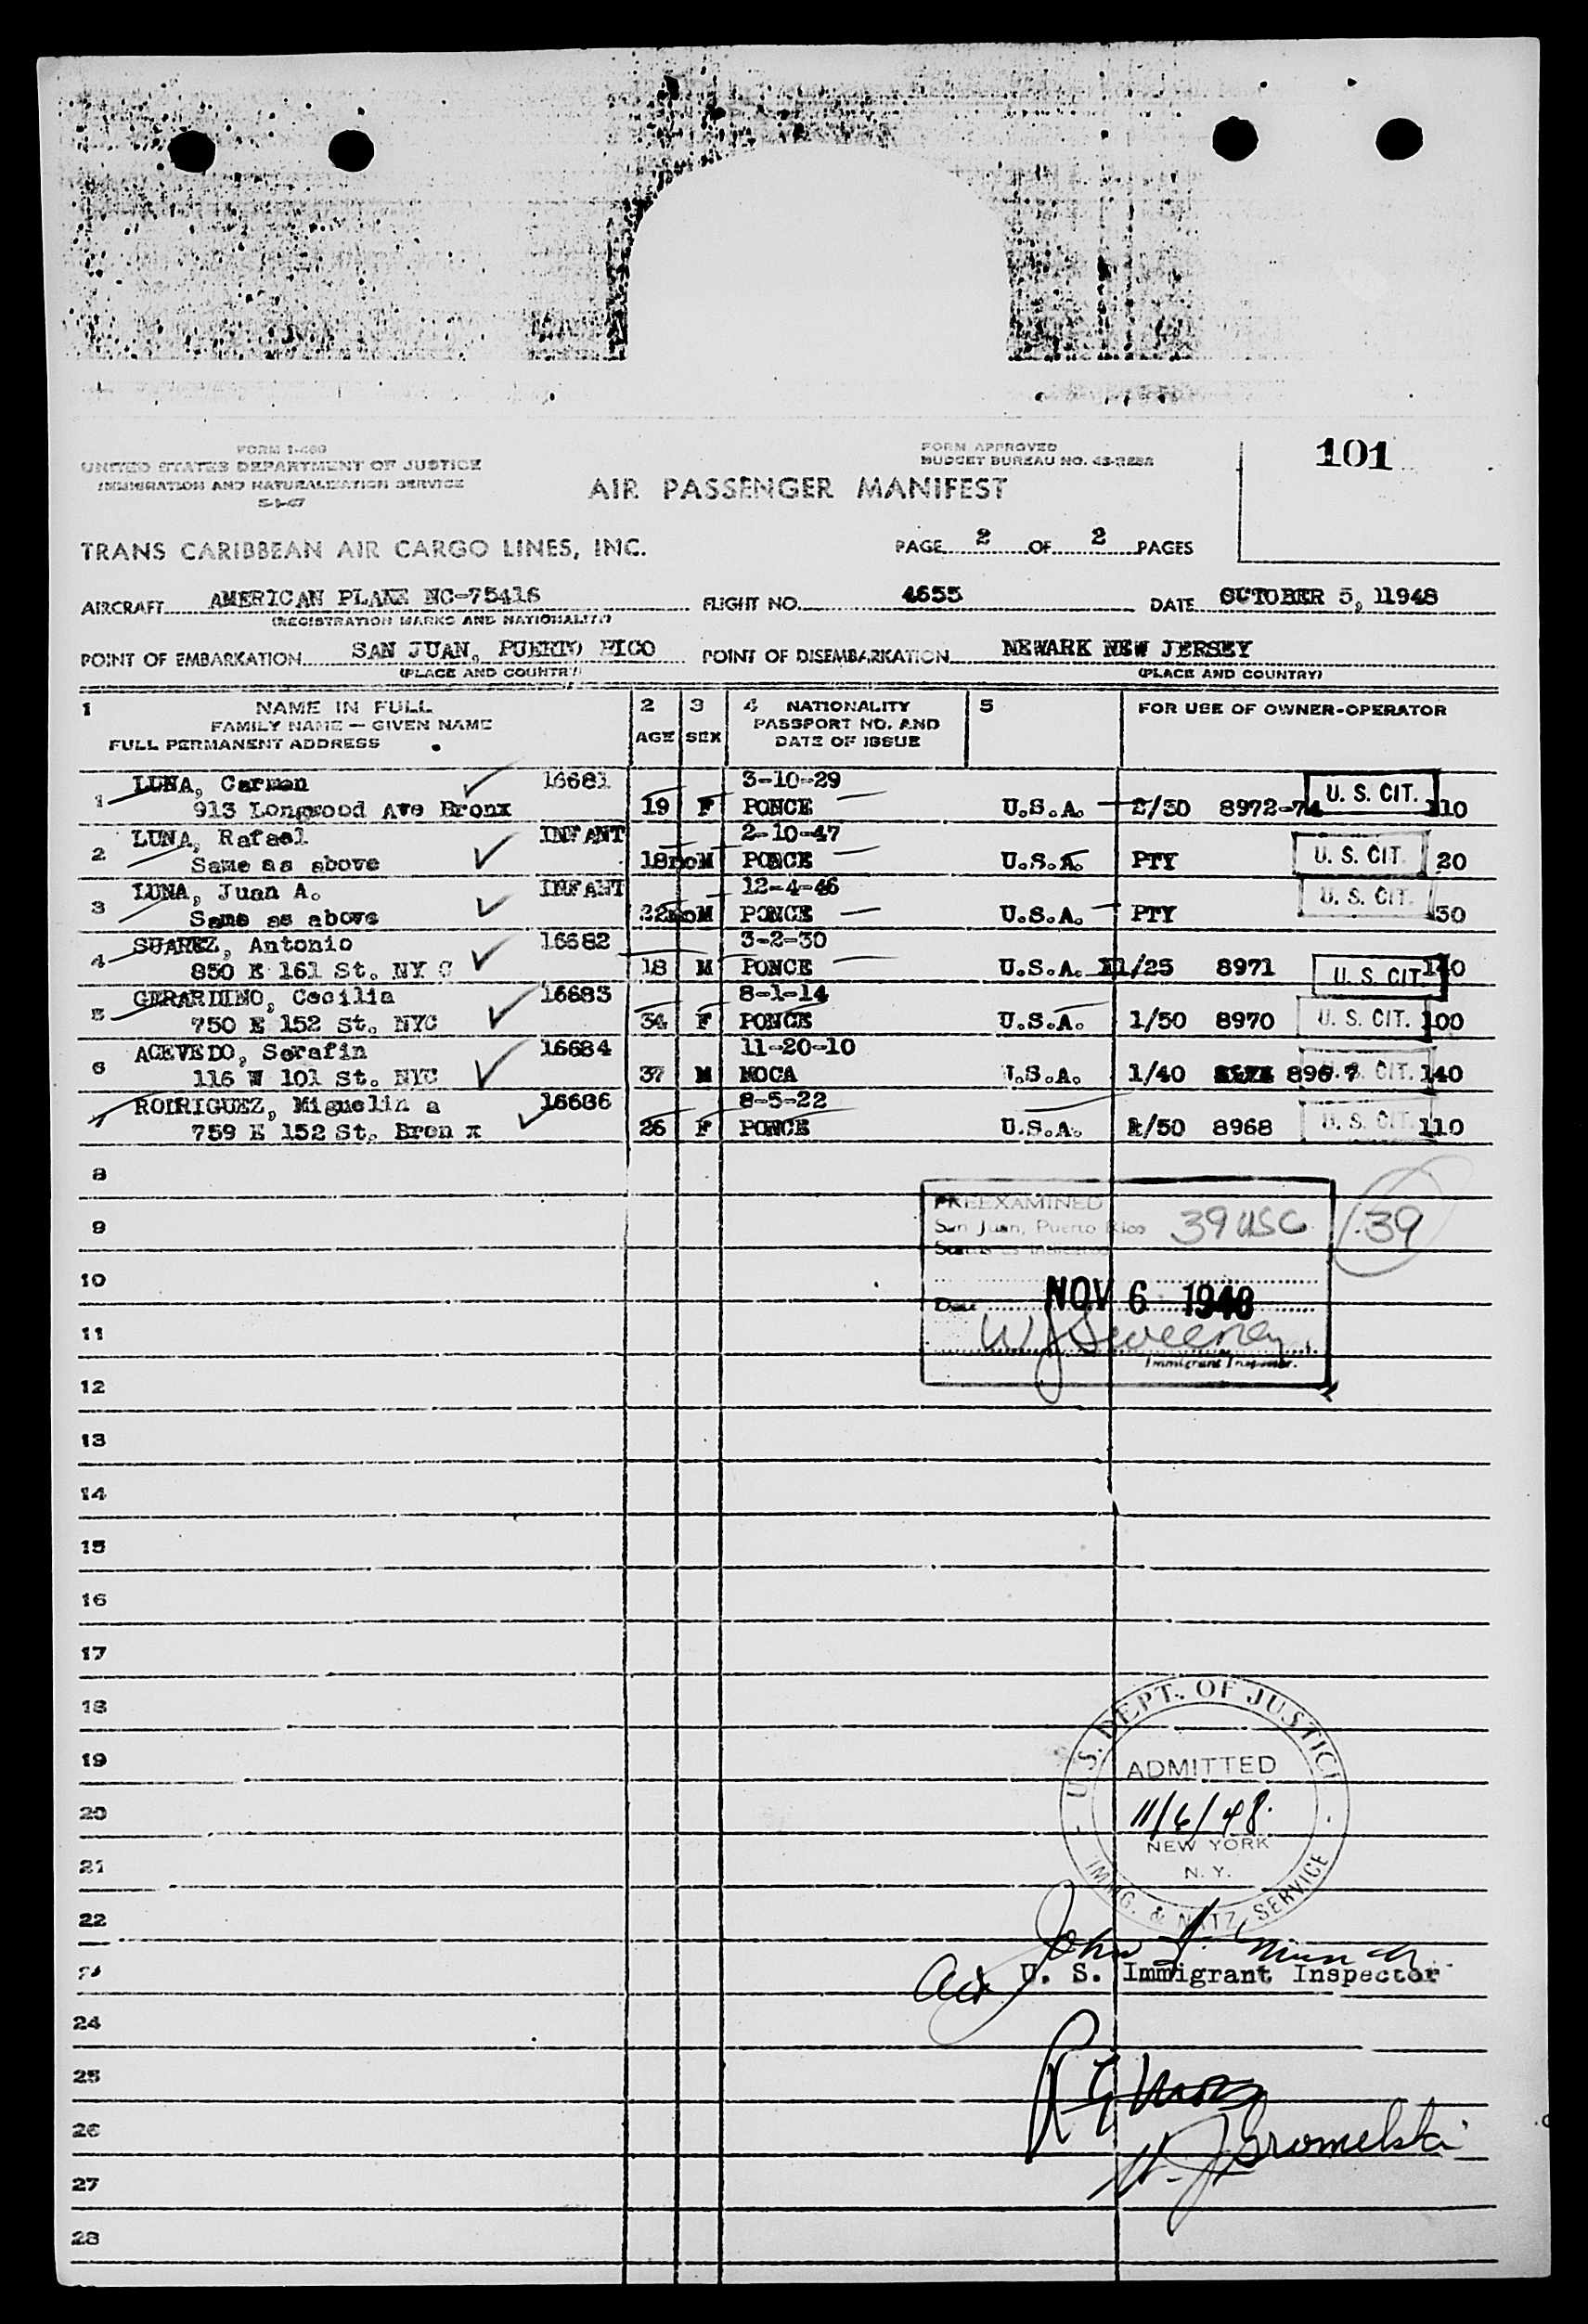 FORM I-466
UNITED STATES DEPARTMENT OF JUSTICE
IMMIGRATION AND NATURALIZATION SERVICE
5-1-47
FORM APPROVED
BUDGET BUREAU NO.
101
AIR PASSENGER MANIFEST
TRANS CARIBBEAN AIR CARGO LINES, INC.
PAGE 2 OF 2 PAGES
AIRCRAFT AMERICAN PLANE NC-75416 FLIGHT NO. 4655 DATE OCTOBER 5, 11948
(REGISTRATION MARKS AND NATIONALITY)
POINT OF EMBARKATION SAN JUAN, PUERTO RICO POINT OF DISEMBARKATION NEWARK NEW JERSEY
(PLACE AND COUNTRY) (PLACE AND COUNTRY)
1 NAME IN FULL 2 3 4 NATIONALITY 5 FOR USE OF OWNER-OPERATOR
FAMILY NAME — GIVEN NAME PASSPORT NO. AND
FULL PERMANENT ADDRESS AGE SEX DATE OF ISSUE
LUNA, Carmen 16681 3-10-29
1 913 Longwood Ave Bronx 19 F PONCE U.S.A. 2/50 8972-74 U. S. CIT. 110
LUNA, Rafael INFANT 2-10-47
2 Same as above 18moM PONCE U.S.A. PTY U. S. CIT. 20
LUNA, Juan A. INFANT 12-4-46
3 Same as above 22moM PONCE U.S.A. PTY U. S. CIT. 30
SUAREZ, Antonio 16682 3-2-30
4 850 E 161 St. NY C 18 M PONCE U.S.A. 1/25 8971 U. S. CIT. 140
GERARDINO, Cecilia 16683 8-1-14
5 750 E 152 St. NYC 34 F PONCE U.S.A. 1/50 8970 U. S. CIT. 100
ACEVEDO, Serafin 16684 11-20-10
6 116 W 101 St. NYC 37 M MOCA U.S.A. 1/40 896 7 U. S. CIT. 140
RODRIGUEZ, Miguelin a 16686 8-5-22
7 759 E 152 St. Bron x 26 F PONCE U.S.A. 2/50 8968 U. S. CIT. 110
8
PREEXAMINED
9 San Juan, Puerto Rico 39 USC 39
Status as Indicated
10
Date NOV 6 1948
11 W J Sweeney
Immigrant Inspector.
12
13
14
15
16
17
18
U.S. DEPT. OF JUSTICE
19 ADMITTED
20 11/6/48.
NEW YORK
21 N. Y.
IMMG. & NATZ. SERVICE
22
John
23 Air U. S. Immigrant Inspector
24
25
26
27
28